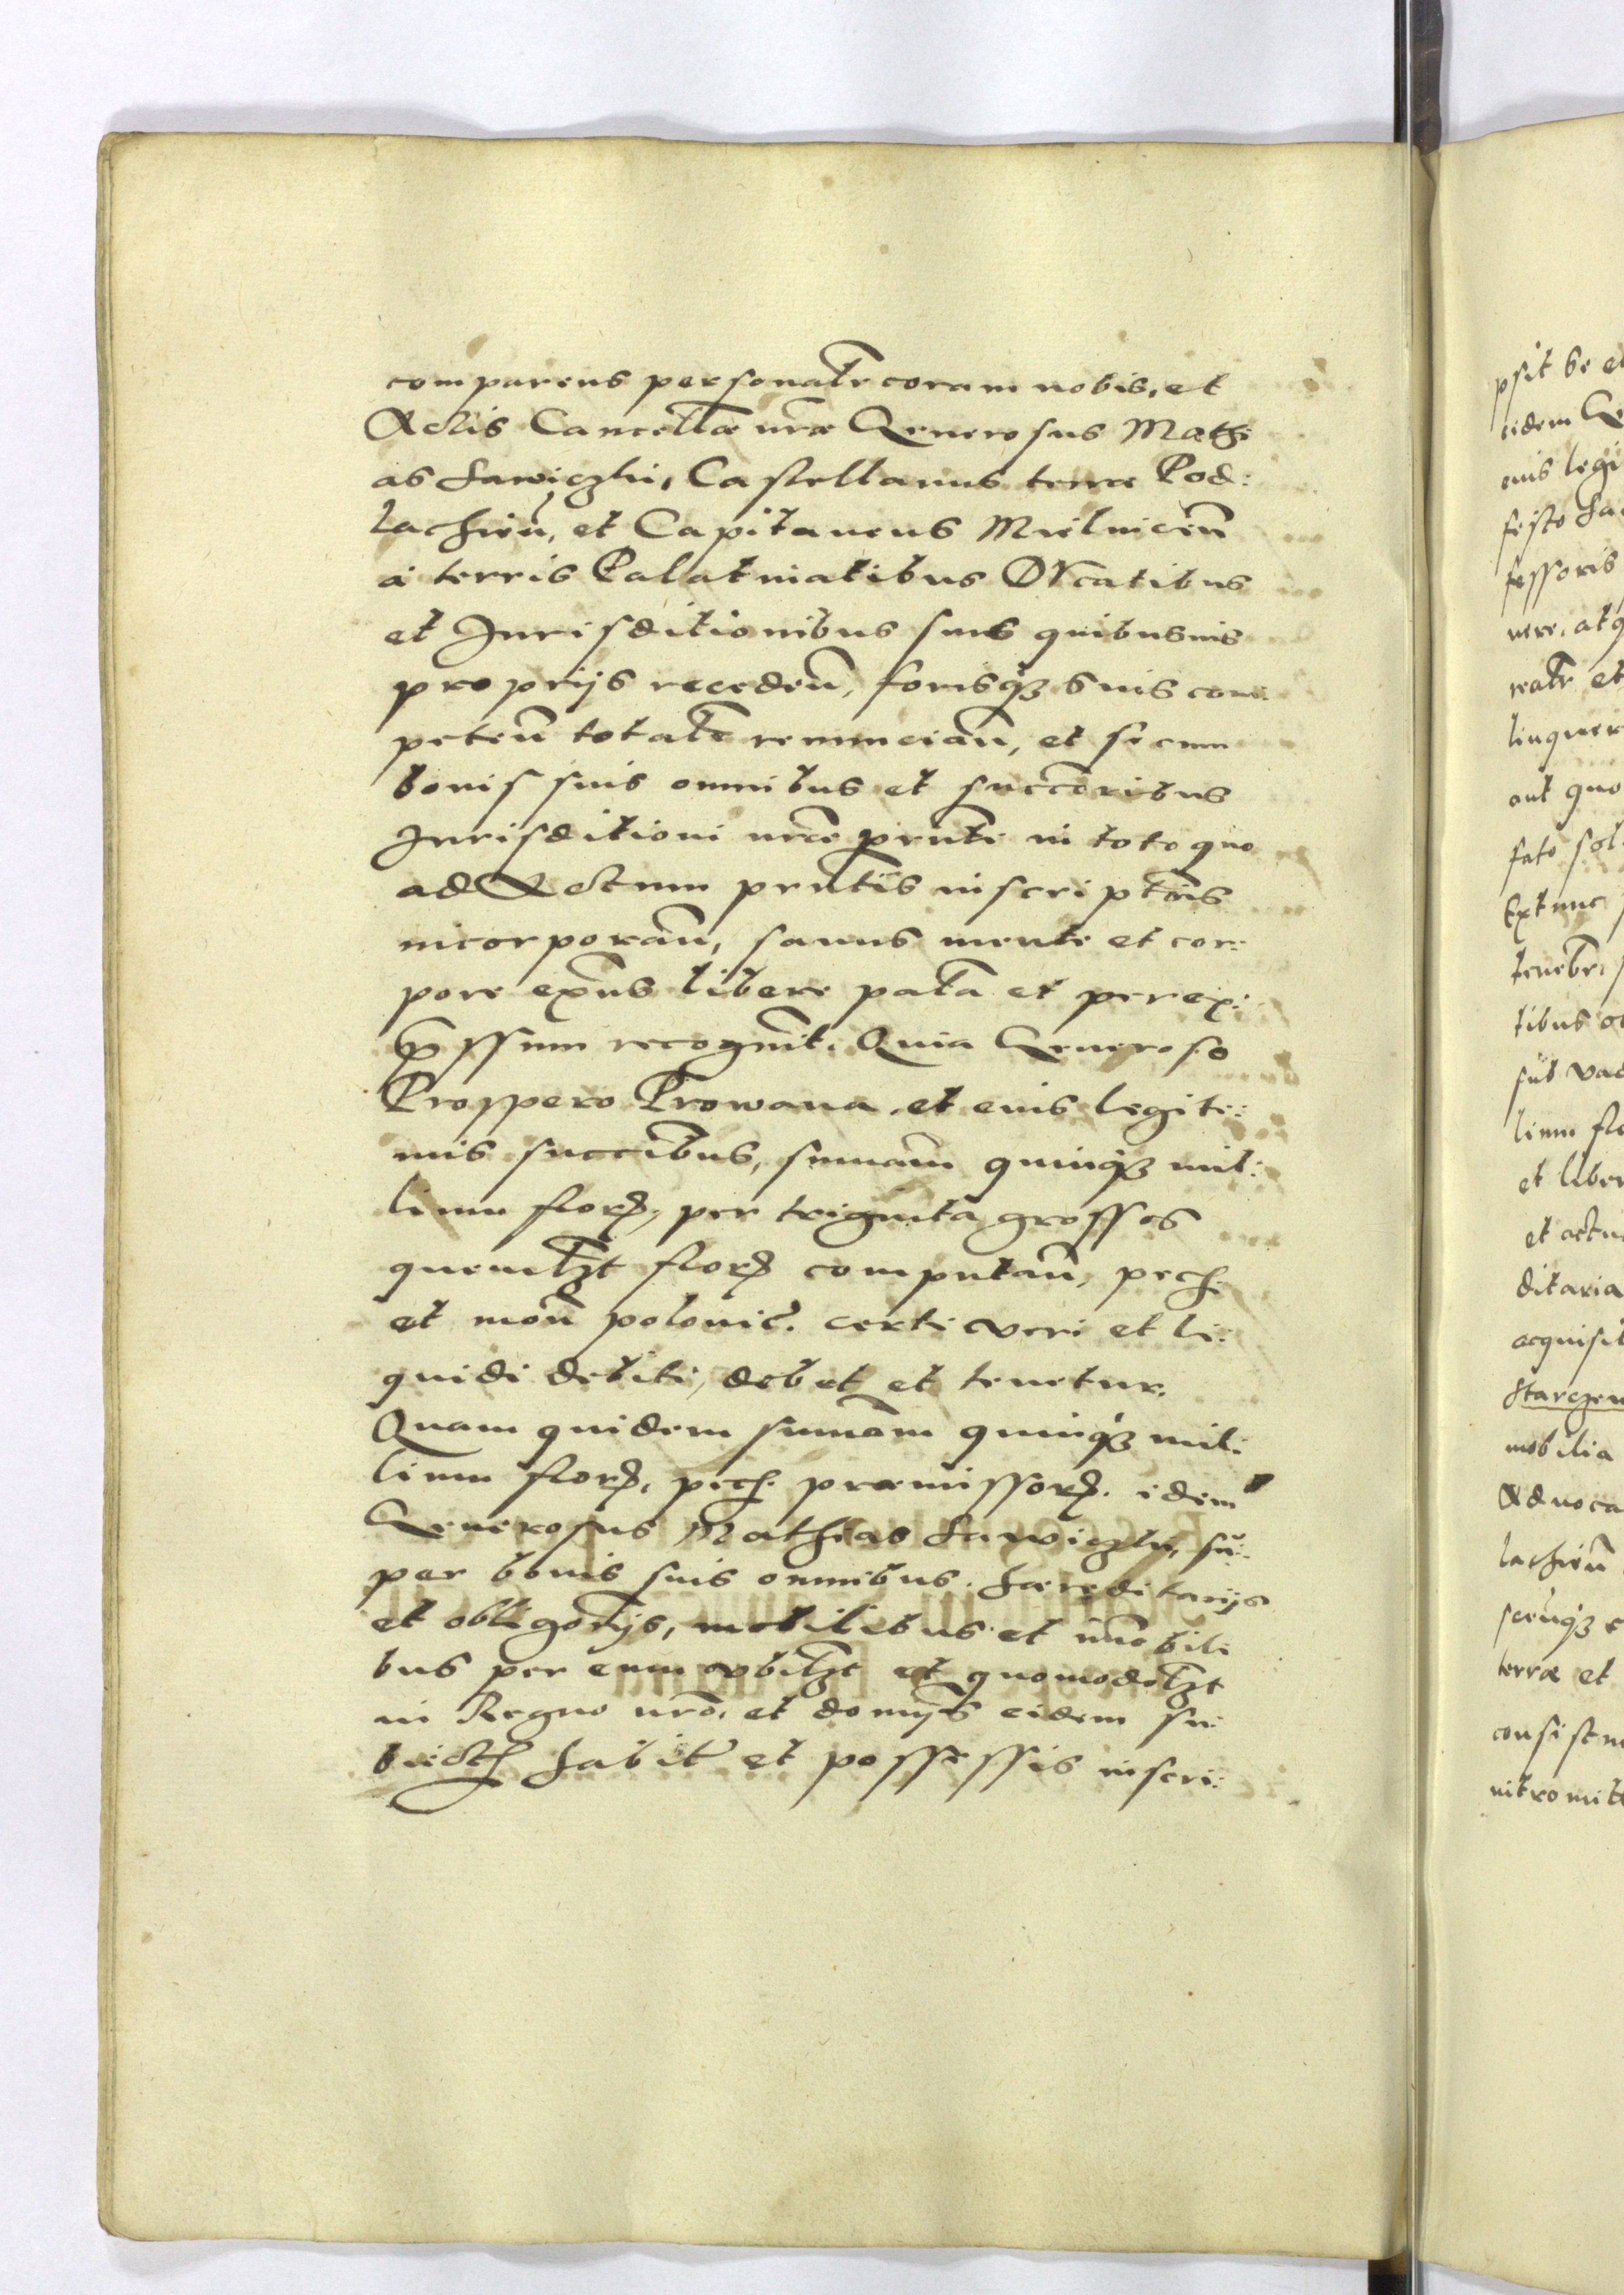 comparens personalr̃ coram nobis, et
Actis Cancellæ nr̃æ Generosus Mathi
as Sawiczki, Castellanus terræ Pod:
lachieñ, et Capitaneus Mielniceñ
a terris Palatinatibus Dr̃catibus
et Jurisditionibus suis quibusuis
proprijs recedeñ, forisq̃ suis com:
peteñ totalr̃ renuncian̄, et se cum
bonis suis omnibus et succoribus
Jurisditioni nr̃æ prñti in toto quo
ad Actum prñtis inscriptõis
incorporañ, sanus mente et cor:
pore exñs libere palã et per ex:
p̃ssum recognoit. Quia Generoso
Prospero Prowana et eius legiti:
mis succibus, summam quinq̃ mil:
lium flor, per triginta grossos
quemlt flor computañ, pecũ.
et moñ polonic̃. certi veri et li:
quidi debiti, debet et tenetur.
Quam quidem summam quinq̃ mil:
lium flor, pecũ præmissor. idem
Generosus Mathias Sawiczki, su:
per bonis suis omnibus. hæreditarijs
et obligorijs, mobilibus et im̃obili
bus per eum vbilt et quomodolt
in Regno nr̃o, et domijs eidem su:
biect habit̃ et possessis inscri:
psit se et
eidem Ge
eius legi
festo Sa
fessoris
nere, atq
realr̃ et
linquer
aut quo
fato sol
Extunc
tenebr̃
tibus
sub vad
lium flo
et liber
et actu
ditaria
acquisit
Starczew
mobilia
Aduoca
lachieñ
sceuq̃
terræ et
consisten
intromitt